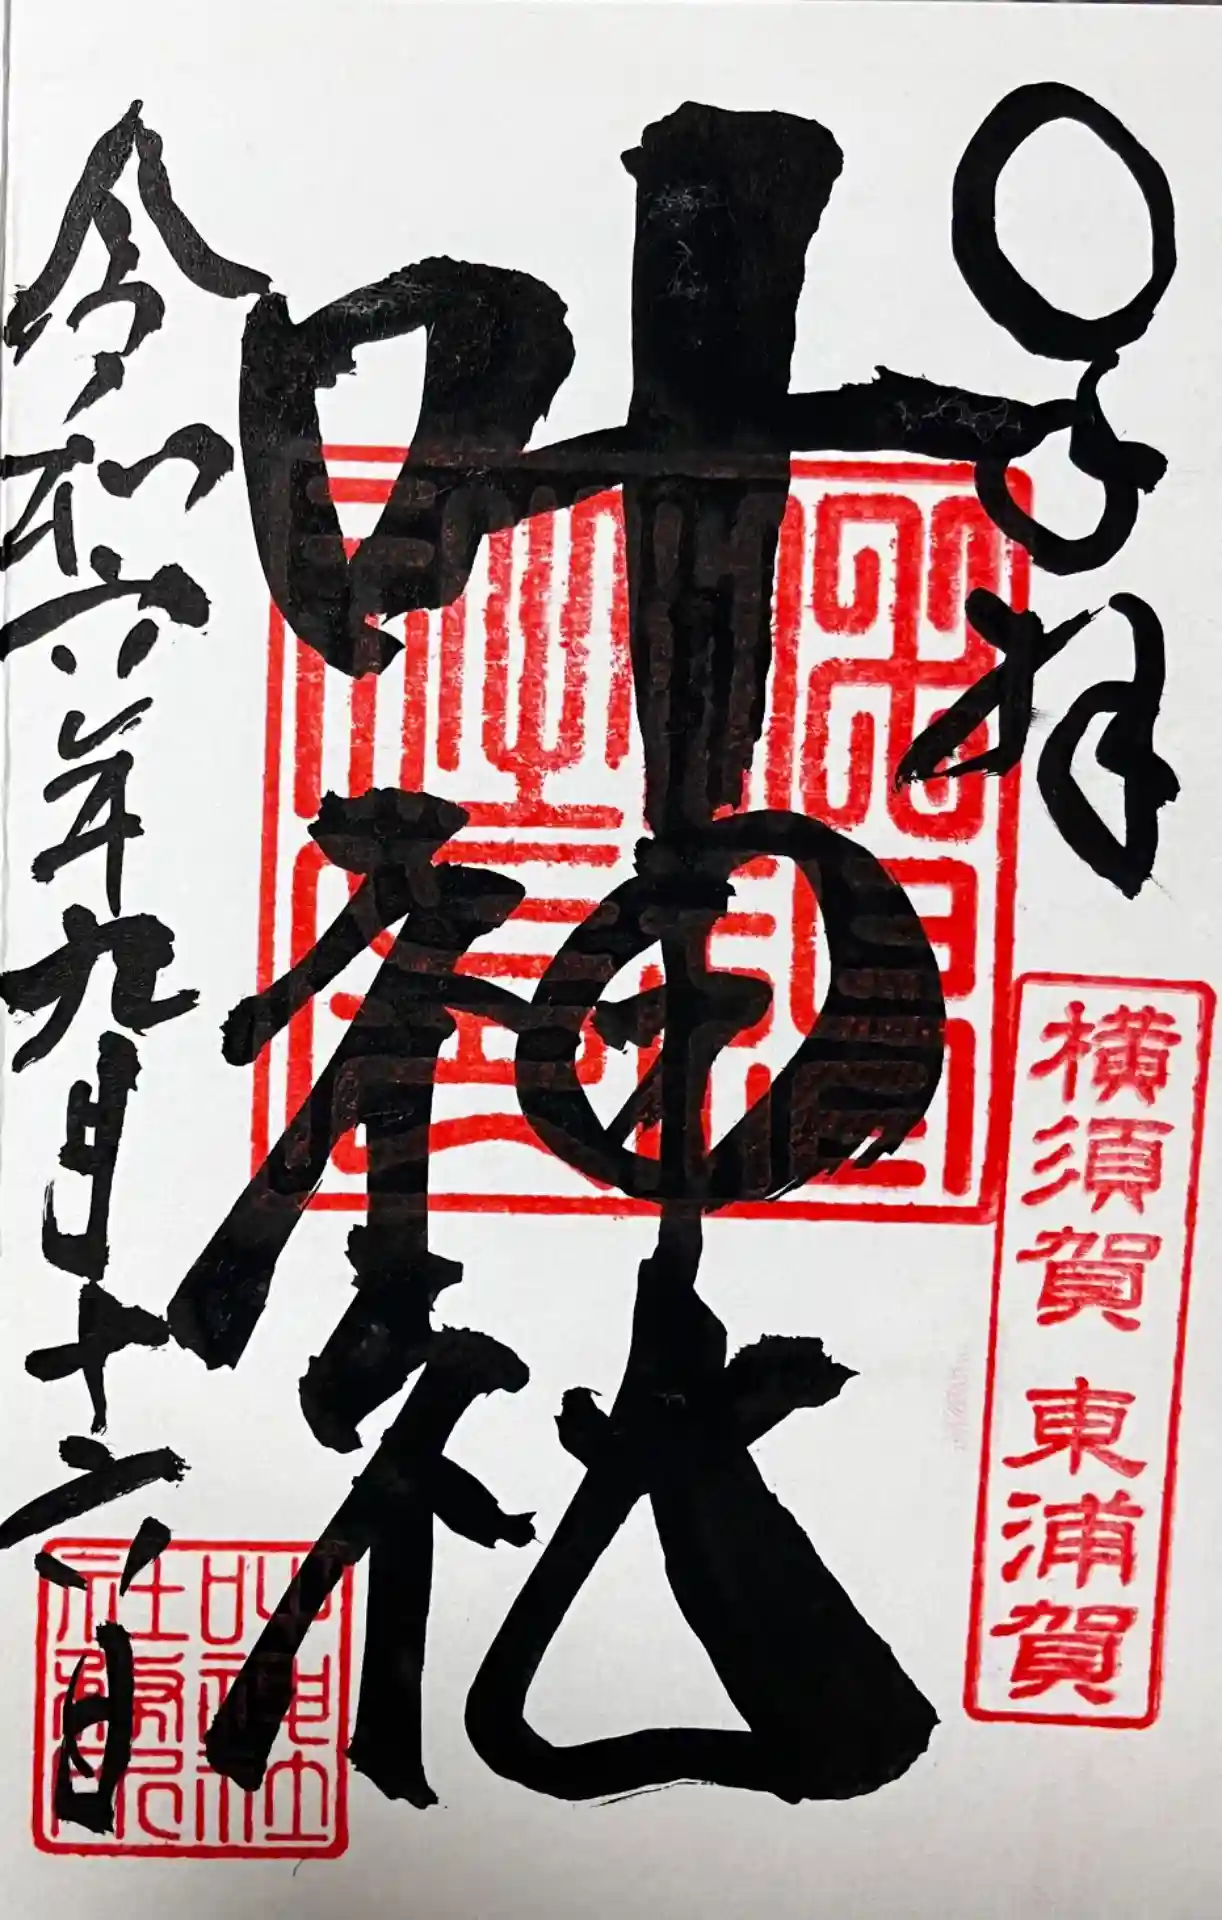 奉拝
横須賀 東浦賀
叶神社
叶神社
社務所
令和六年九月十六日